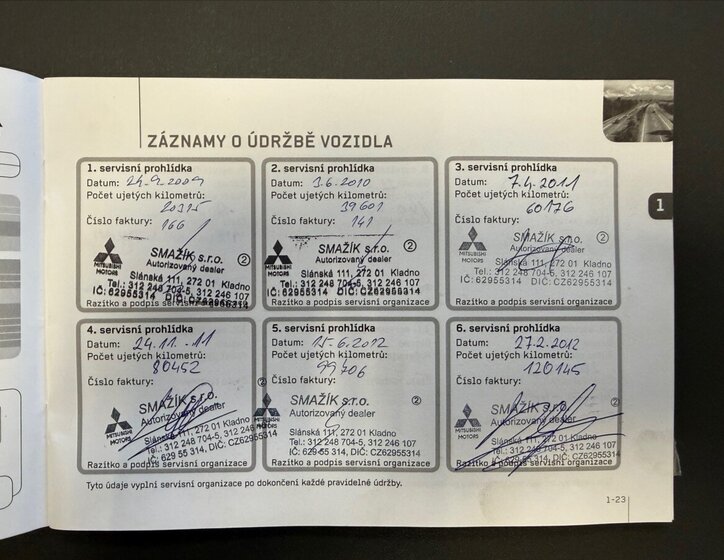 ZÁZNAMY O ÚDRŽBĚ VOZIDLA
1
1. servisní prohlídka
Datum: 24.9.2009
Počet ujetých kilometrů:
20315
Číslo faktury:
166
MITSUBISHI MOTORS
SMAŽÍK s.r.o. ②
Autorizovaný dealer
Slánská 111, 272 01 Kladno
Tel.: 312 248 704-5, 312 246 107
IČ: 62955314 DIČ: CZ62955314
Razítko a podpis servisní organizace
2. servisní prohlídka
Datum: 3.6.2010
Počet ujetých kilometrů:
39601
Číslo faktury:
141
MITSUBISHI MOTORS
SMAŽÍK s.r.o. ②
Autorizovaný dealer
Slánská 111, 272 01 Kladno
Tel.: 312 248 704-5, 312 246 107
IČ: 62955314 DIČ: CZ62955314
Razítko a podpis servisní organizace
3. servisní prohlídka
Datum: 7.4.2011
Počet ujetých kilometrů:
60176
Číslo faktury:
MITSUBISHI MOTORS
SMAŽÍK s.r.o. ②
Autorizovaný dealer
Slánská 111, 272 01 Kladno
Tel.: 312 248 704-5, 312 246 107
IČ: 62955314 DIČ: CZ62955314
Razítko a podpis servisní organizace
4. servisní prohlídka
Datum: 24.11.-11
Počet ujetých kilometrů:
80452
Číslo faktury:
MITSUBISHI MOTORS
SMAŽÍK s.r.o. ②
Autorizovaný dealer
Slánská 111, 272 01 Kladno
Tel.: 312 248 704-5, 312 246 107
IČ: 629 55 314, DIČ: CZ62955314
Razítko a podpis servisní organizace
5. servisní prohlídka
Datum: 15.6.2012
Počet ujetých kilometrů:
Číslo faktury:
MITSUBISHI MOTORS
SMAŽÍK s.r.o. ②
Autorizovaný dealer
Slánská 111, 272 01 Kladno
Tel.: 312 248 704-5, 312 246 107
IČ: 629 55 314, DIČ: CZ62955314
Razítko a podpis servisní organizace
6. servisní prohlídka
Datum: 27.2.2012
Počet ujetých kilometrů:
120145
Číslo faktury:
MITSUBISHI MOTORS
SMAŽÍK s.r.o. ②
Autorizovaný dealer
Slánská 111, 272 01 Kladno
Tel.: 312 248 704-5, 312 246 107
IČ: 629 55 314, DIČ: CZ62955314
Razítko a podpis servisní organizace
Tyto údaje vyplní servisní organizace po dokončení každé pravidelné údržby.
1-23